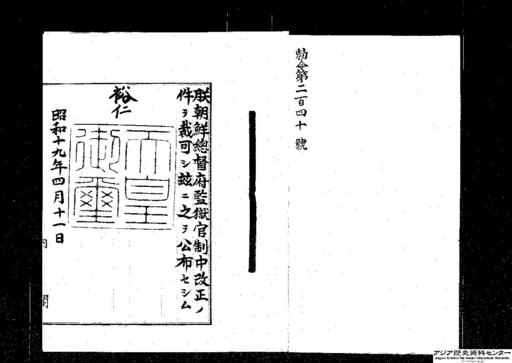 勅令第二百四十號
朕朝鮮總督府監獄官制中改正ノ
件ヲ裁可シ茲ニ之ヲ公布セシム
裕仁
天皇
御璽
昭和十九年四月十一日
内閣
アジア歴史資料センター
Japan Center for Asian Historical Records